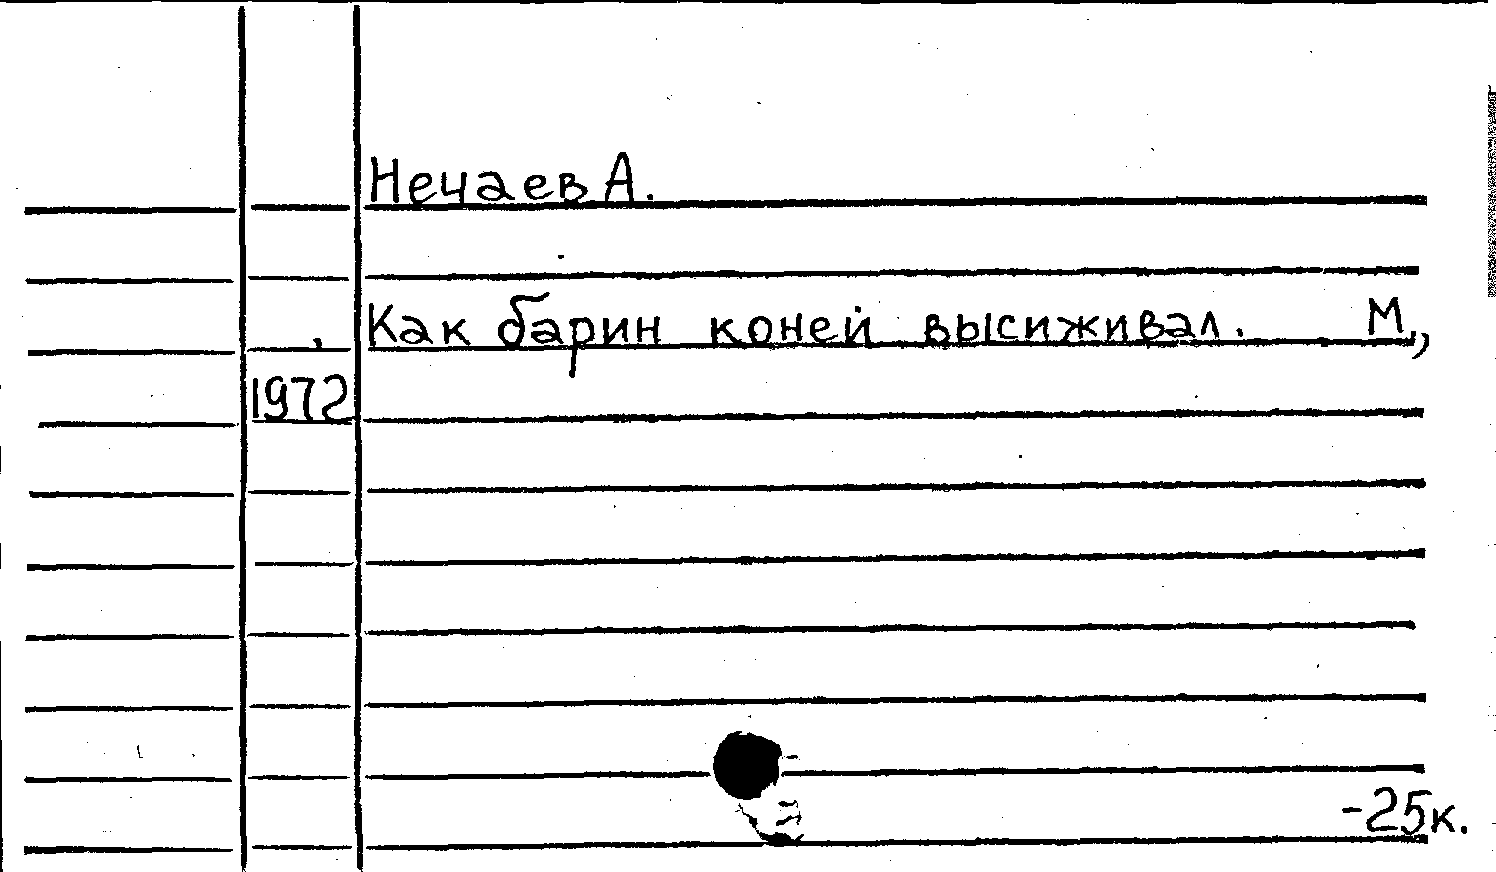 Нечаев А.
Как барин коней высиживал. М.,
1972
-25к.